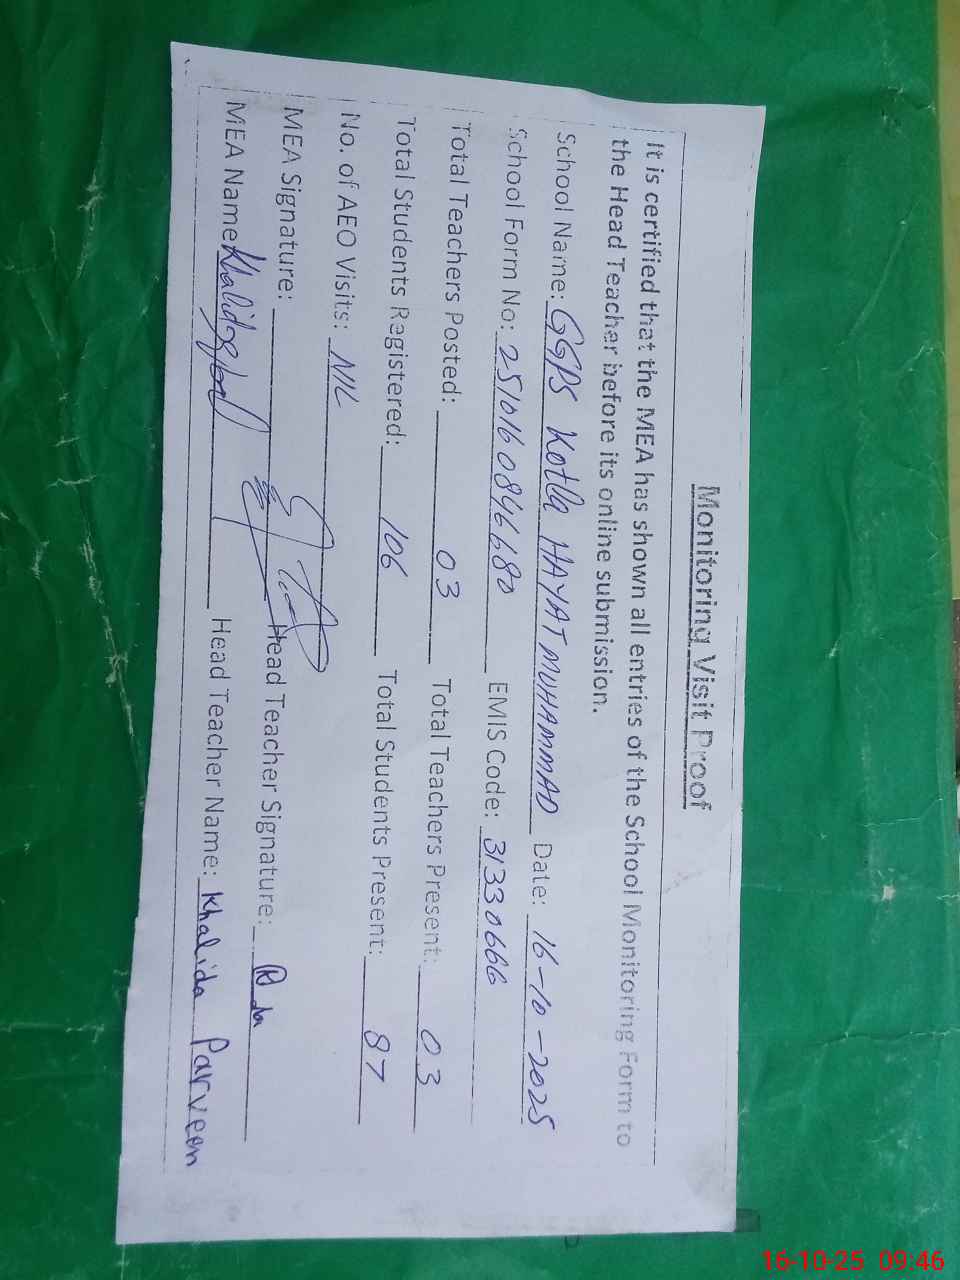 Monitoring Visit Proof
It is certified that the MEA has shown all entries of the School Monitoring Form to
the Head Teacher before its online submission.
School Name: GGPS Kotla HAYAT MUHAMMAD Date: 16-10-2025
School Form No: 2510160846680 EMIS Code: 31330666
Total Teachers Posted: 03 Total Teachers Present: 03
Total Students Registered: 106 Total Students Present: 87
No. of AEO Visits: NIL
MEA Signature: Head Teacher Signature:
MEA Name Head Teacher Name: Khalida Parveen
16-10-25 09:46